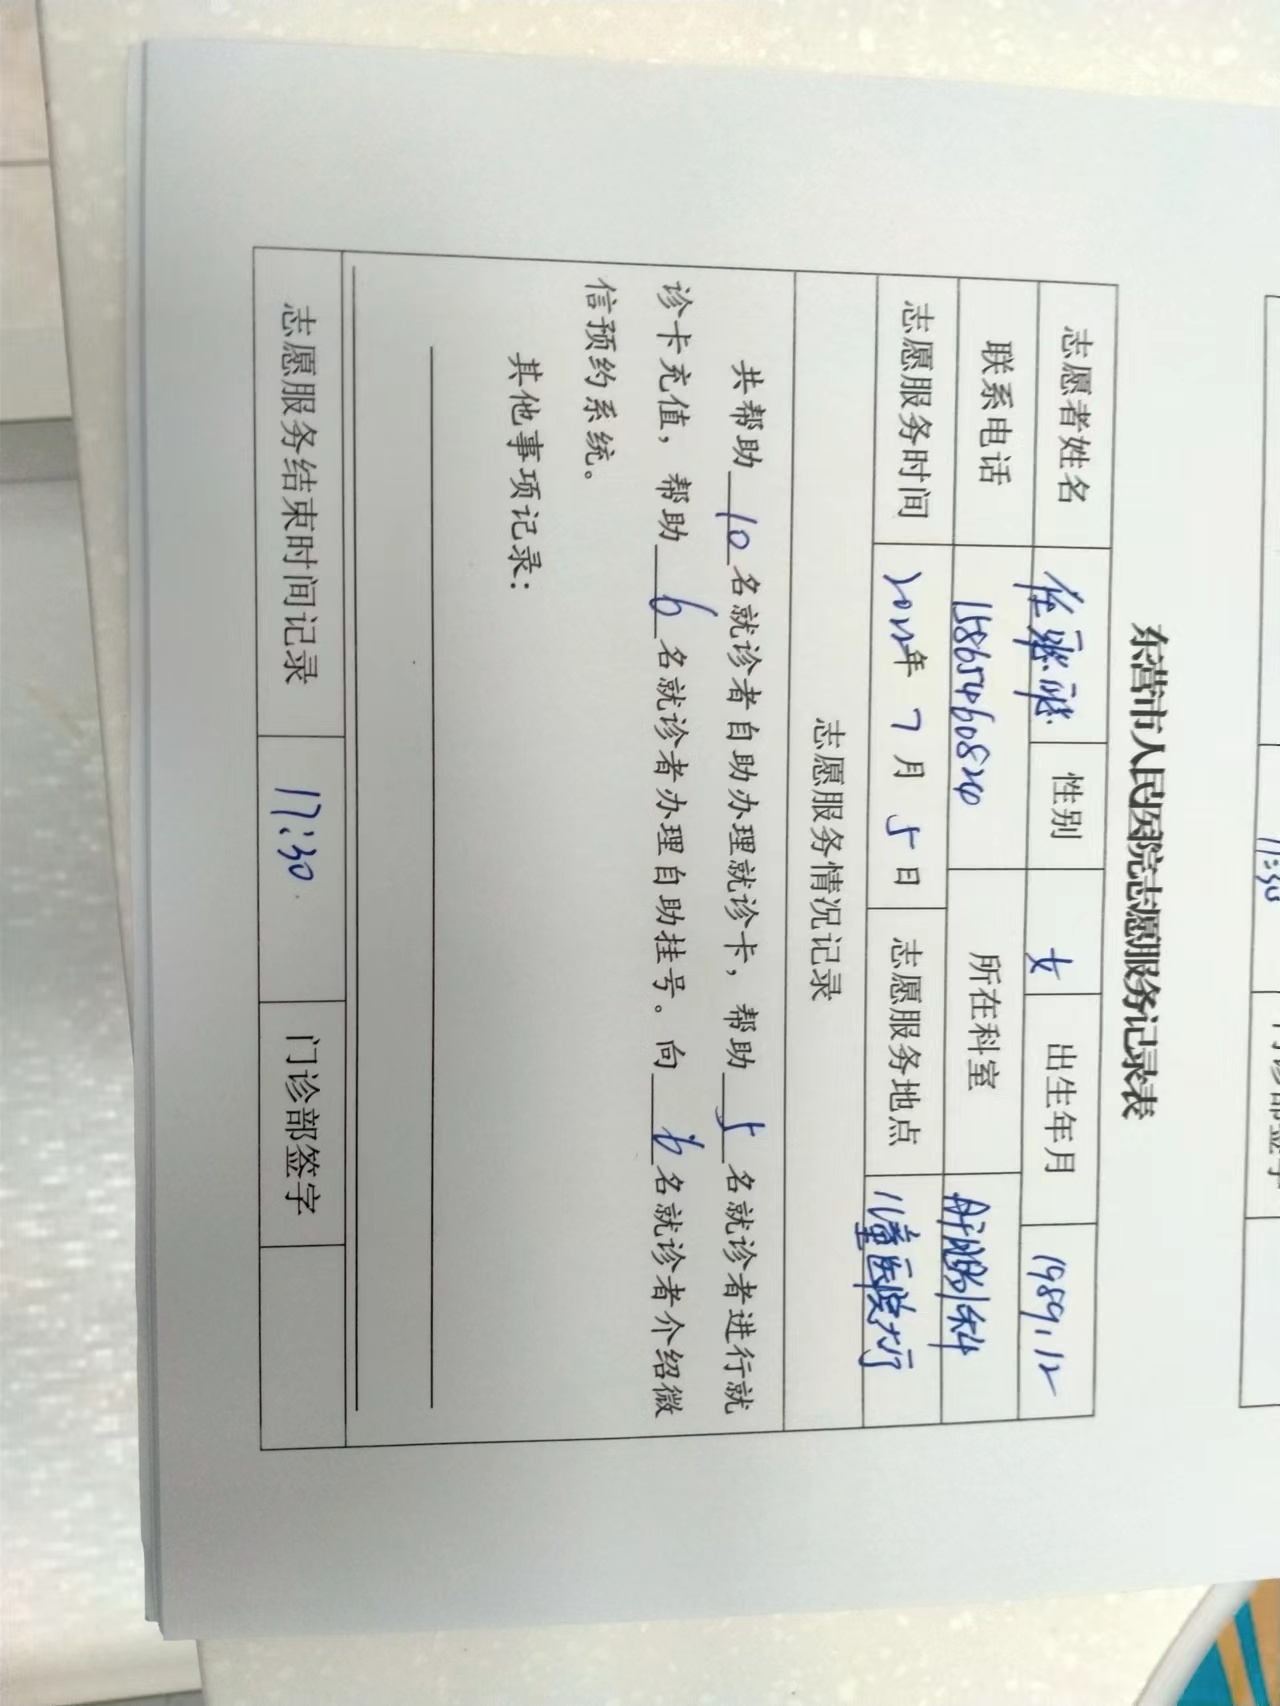 东营市人民医院志愿服务记录表
志愿者姓名 任 性别 女 出生年月 1989.12
联系电话 15865460824 所在科室 肝胆外科
志愿服务时间 2022年 7 月 5 日 志愿服务地点 儿童医院大厅
志愿服务情况记录
共帮助 10 名就诊者自助办理就诊卡，帮助 5 名就诊者进行就
诊卡充值，帮助 6 名就诊者办理自助挂号。向 6 名就诊者介绍微
信预约系统。
其他事项记录：
志愿服务结束时间记录 17:30 门诊部签字
11:30 门诊部签字